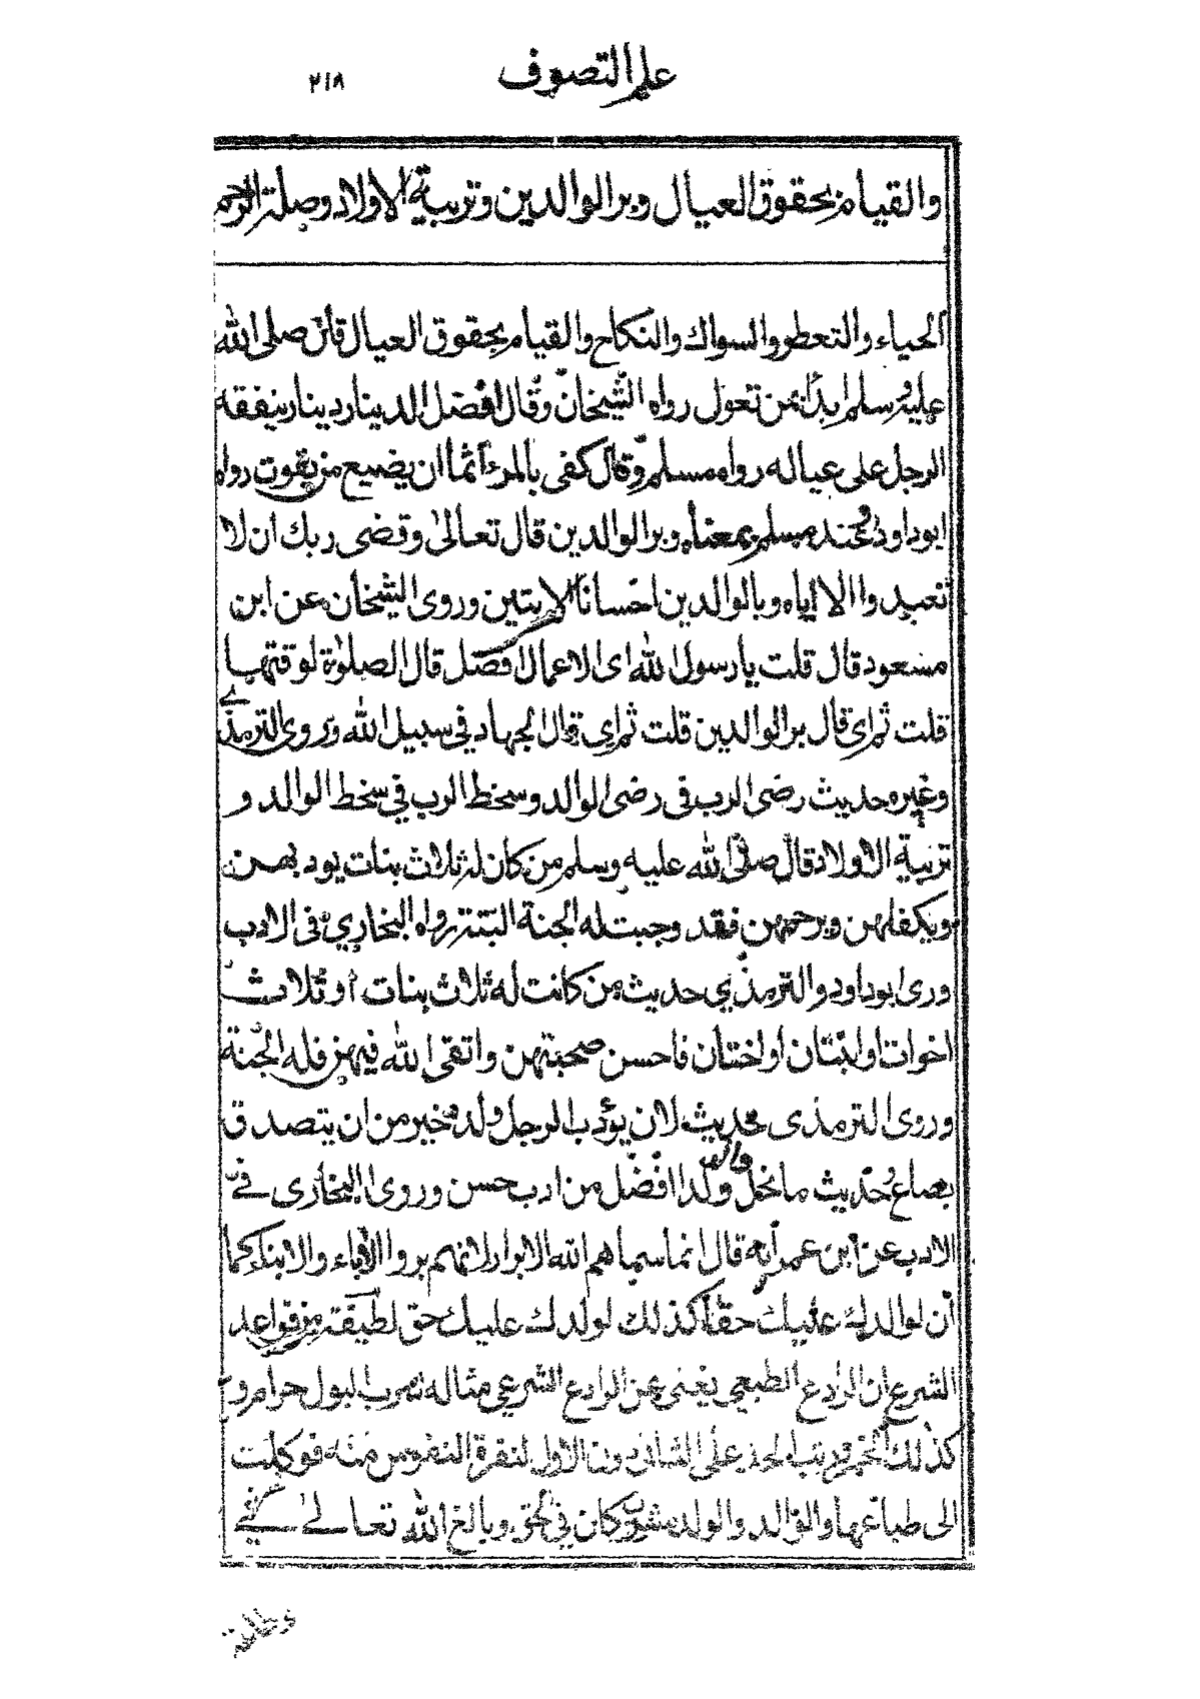 علم التصوف
٢١٨
والقيام بحقوق العيال وبر الوالدين وتربية الاولاد وصلة الرحم
الحياء والتعطر والسواك والنكاح والقيام بحقوق العيال قال صلى الله
عليه وسلم ابدأ بمن تعول رواه الشيخان وقال افضل الدينار دينار ينفقه
الرجل على عياله رواه مسلم وقال كفى بالمرء اثما ان يضيع من يقوت رواه
ابوداود وعند مسلم بمعناه وبر الوالدين قال تعالى وقضى ربك ان لا
تعبدوا الا اياه وبالوالدين احسانا الايتين وروى الشيخان عن ابن
مسعود قال قلت يا رسول الله اى الاعمال افضل قال الصلوة لوقتها
قلت ثم اي قال بر الوالدين قلت ثم اي قال الجهاد في سبيل الله وروى الترمذي
وغيره حديث رضى الرب فى رضى الوالد وسخط الرب في سخط الوالد و
تربية الاولاد قال صلى الله عليه وسلم من كان له ثلاث بنات يودبهن
ويكفلهن ويرحمهن فقد وجبت له الجنة البتة رواه البخاري فى الادب
وروى ابوداود والترمذي حديث من كانت له ثلاث بنات او ثلاث
اخوات او ابنتان او اختان فاحسن صحبتهن واتقى الله فيهن فله الجنة
وروى الترمذى حديث لان يؤدب الرجل ولده خير من ان يتصدق
بصاع وحديث ما نحل والد ولدا افضل من ادب حسن وروى البخارى في
الادب عن ابن عمر انه قال انما سماهم الله الابرار لانهم بروا الآباء والابناء كما
أن لوالدك عليك حقا كذلك لولدك عليك حق لطيفة من قواعد
الشرع ان الرادع الطبعي يغنى عن الرادع الشرعي مثاله شرب البول حرام و
كذلك الخمر ورتب الحد على الثانى دون الاول لنفرة النفوس منه فوكلت
الى طباعها والوالد والولد مشتركان في الحق وبالغ الله تعالى في